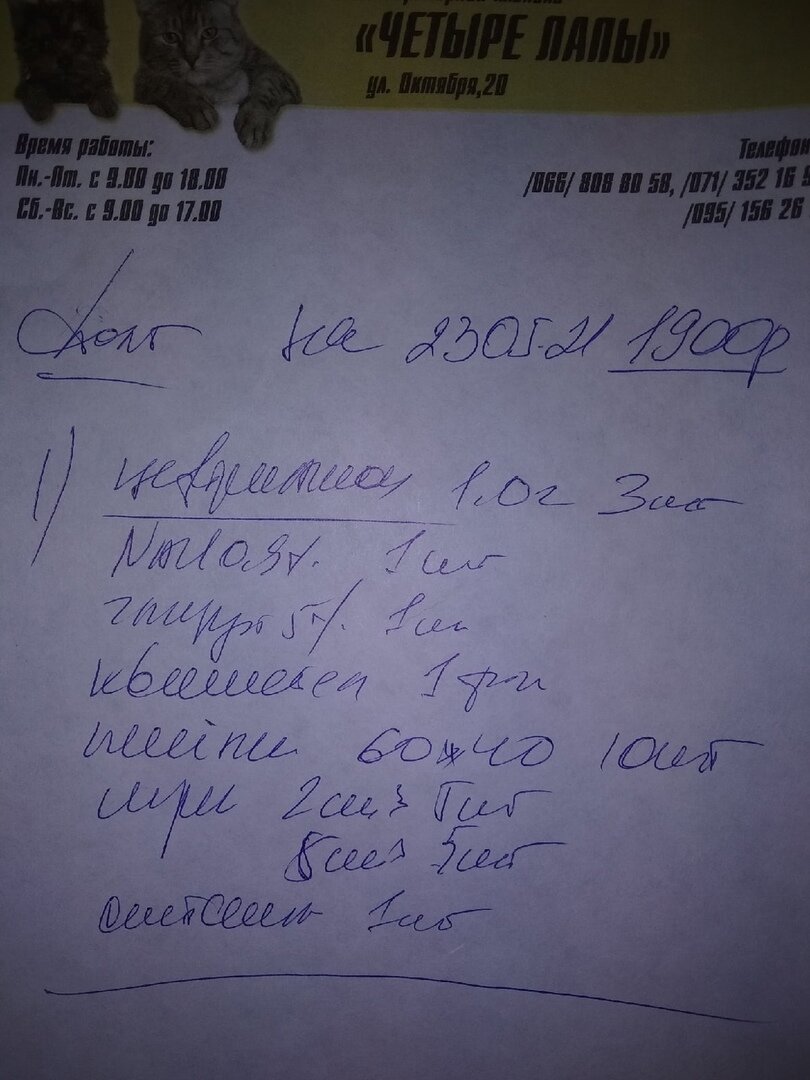 «ЧЕТЫРЕ ЛАПЫ»
ул. Октября,20
Время работы:
Пн.-Пт. с 9.00 до 18.00
Сб.-Вс. с 9.00 до 17.00
Телефон
/066/ 808 80 58, /071/ 352 16 9
/095/ 156 26
Долг на 23.05.21 1900р
1) цефтриаксон 1.0г 3шт
NaCl 0.9%. 1шт
глюкоза 5%. 1шт
1 фл
пелёнки 60х40 10шт
шпр 2см3 5шт
5см3 5шт
1шт